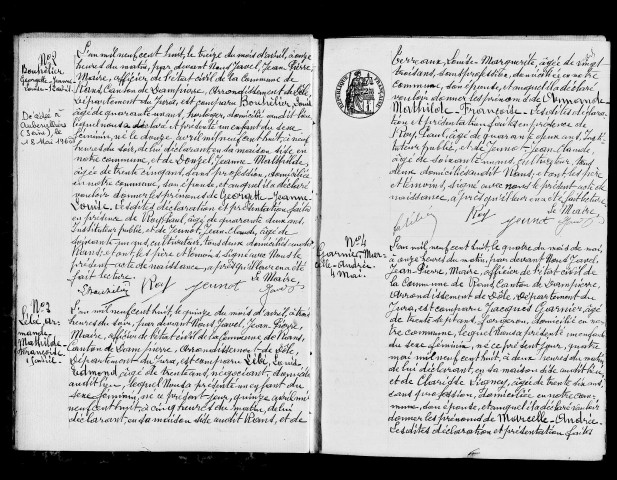 N°2
Bouhélier
Georgette-Jeanne-
Louise
12 avril
Décédée à
Aubervilliers
(Seine), le
18 Mai 1960
L'an mil neuf cent huit, le treize du mois d'avril, à onze
heures du matin, par devant Nous Javel, Jean Pierre,
Maire, officier de l'état civil de la commune de
Rans, Canton de Dampierre, Arrondissement de Dôle,
Département du Jura, est comparu Bouhélier, Louis
âgé de quarante un ans, horloger, domicilié audit lieu
lequel nous a déclaré et présenté un enfant du sexe
féminin, né le douze avril mil neuf cent huit, à neuf
heures du soir, de lui déclarant, en sa maison sise en
notre commune, et de Douzet, Jeanne Mathilde,
âgée de trente cinq ans, sans profession, domiciliée
en notre commune, son épouse, et auquel il a déclaré
vouloir donner les prénoms de Georgette-Jeanne-
Louise. Lesdites déclaration et présentation faites
en présence de Roy, Paul, âgé de quarante deux ans,
Instituteur public, et de Jeunot, Jean Claude, âgé de
soixante un ans, cultivateur, tous deux domiciliés audit
Rans, et ont les père et témoins, signé avec Nous le
présent acte de naissance, après qu'il leur en a été
fait lecture. Le Maire,
Bouhélier Roy Jeunot
N°3
Lébé, Ar-
mande-
Mathilde-
Françoise
15 avril
L'an mil neuf cent huit, le quinze du mois d'avril, à trois
heures du soir, par devant Nous Javel, Jean Pierre,
Maire, officier de l'état civil de la commune de Rans,
Canton de Dampierre, Arrondissement de Dôle,
Département du Jura, est comparu Lébé, Louis
Edmond, âgé de trente ans, négociant, domicilié
audit lieu, lequel Nous a présenté un enfant du
sexe féminin, né ce présent jour, quinze avril mil
neuf cent huit, à cinq heures du matin, de lui
déclarant, en sa maison sise audit Rans, et de
Louise Marguerite, âgée de vingt
trois ans, sans profession, domiciliée en notre
commune, son épouse, et auquel il a déclaré
vouloir donner les prénoms de Armande-
Mathilde-Françoise. Lesdites décla-
ration et présentation faites en présence de
Roy, Paul, âgé de quarante deux ans, Insti-
tuteur public, et de Jeunot Jean Claude,
âgé de soixante un ans, cultivateur, tous
deux domiciliés audit Rans, et ont les père
et témoins, signé avec nous le présent acte de
naissance, après qu'il leur en a été fait lecture.
Le Maire,
Roy Jeunot
N°4
Garnier, Mar-
celle-Andrée
4 Mai
L'an mil neuf cent huit, le quatre du mois de mai,
à onze heures du matin, par devant Nous Javel,
Jean Pierre, Maire, officier de l'état civil de
la Commune de Rans, Canton de Dampierre,
Arrondissement de Dôle, Département du
Jura, est comparu Jacques Garnier, âgé
de trente sept ans, forgeron, domicilié en no-
tre commune, lequel Nous a présenté un enfant
du sexe féminin, né ce présent jour, quatre
mai mil neuf cent huit, à deux heures du matin,
de lui déclarant, en sa maison sise audit lieu
et de Clarisse Ligney, âgée de trente six ans,
sans profession, domiciliée en notre com-
mune, son épouse, et auquel il a déclaré vouloir
donner les prénoms de Marcelle-Andrée.
Lesdites déclaration et présentation faites